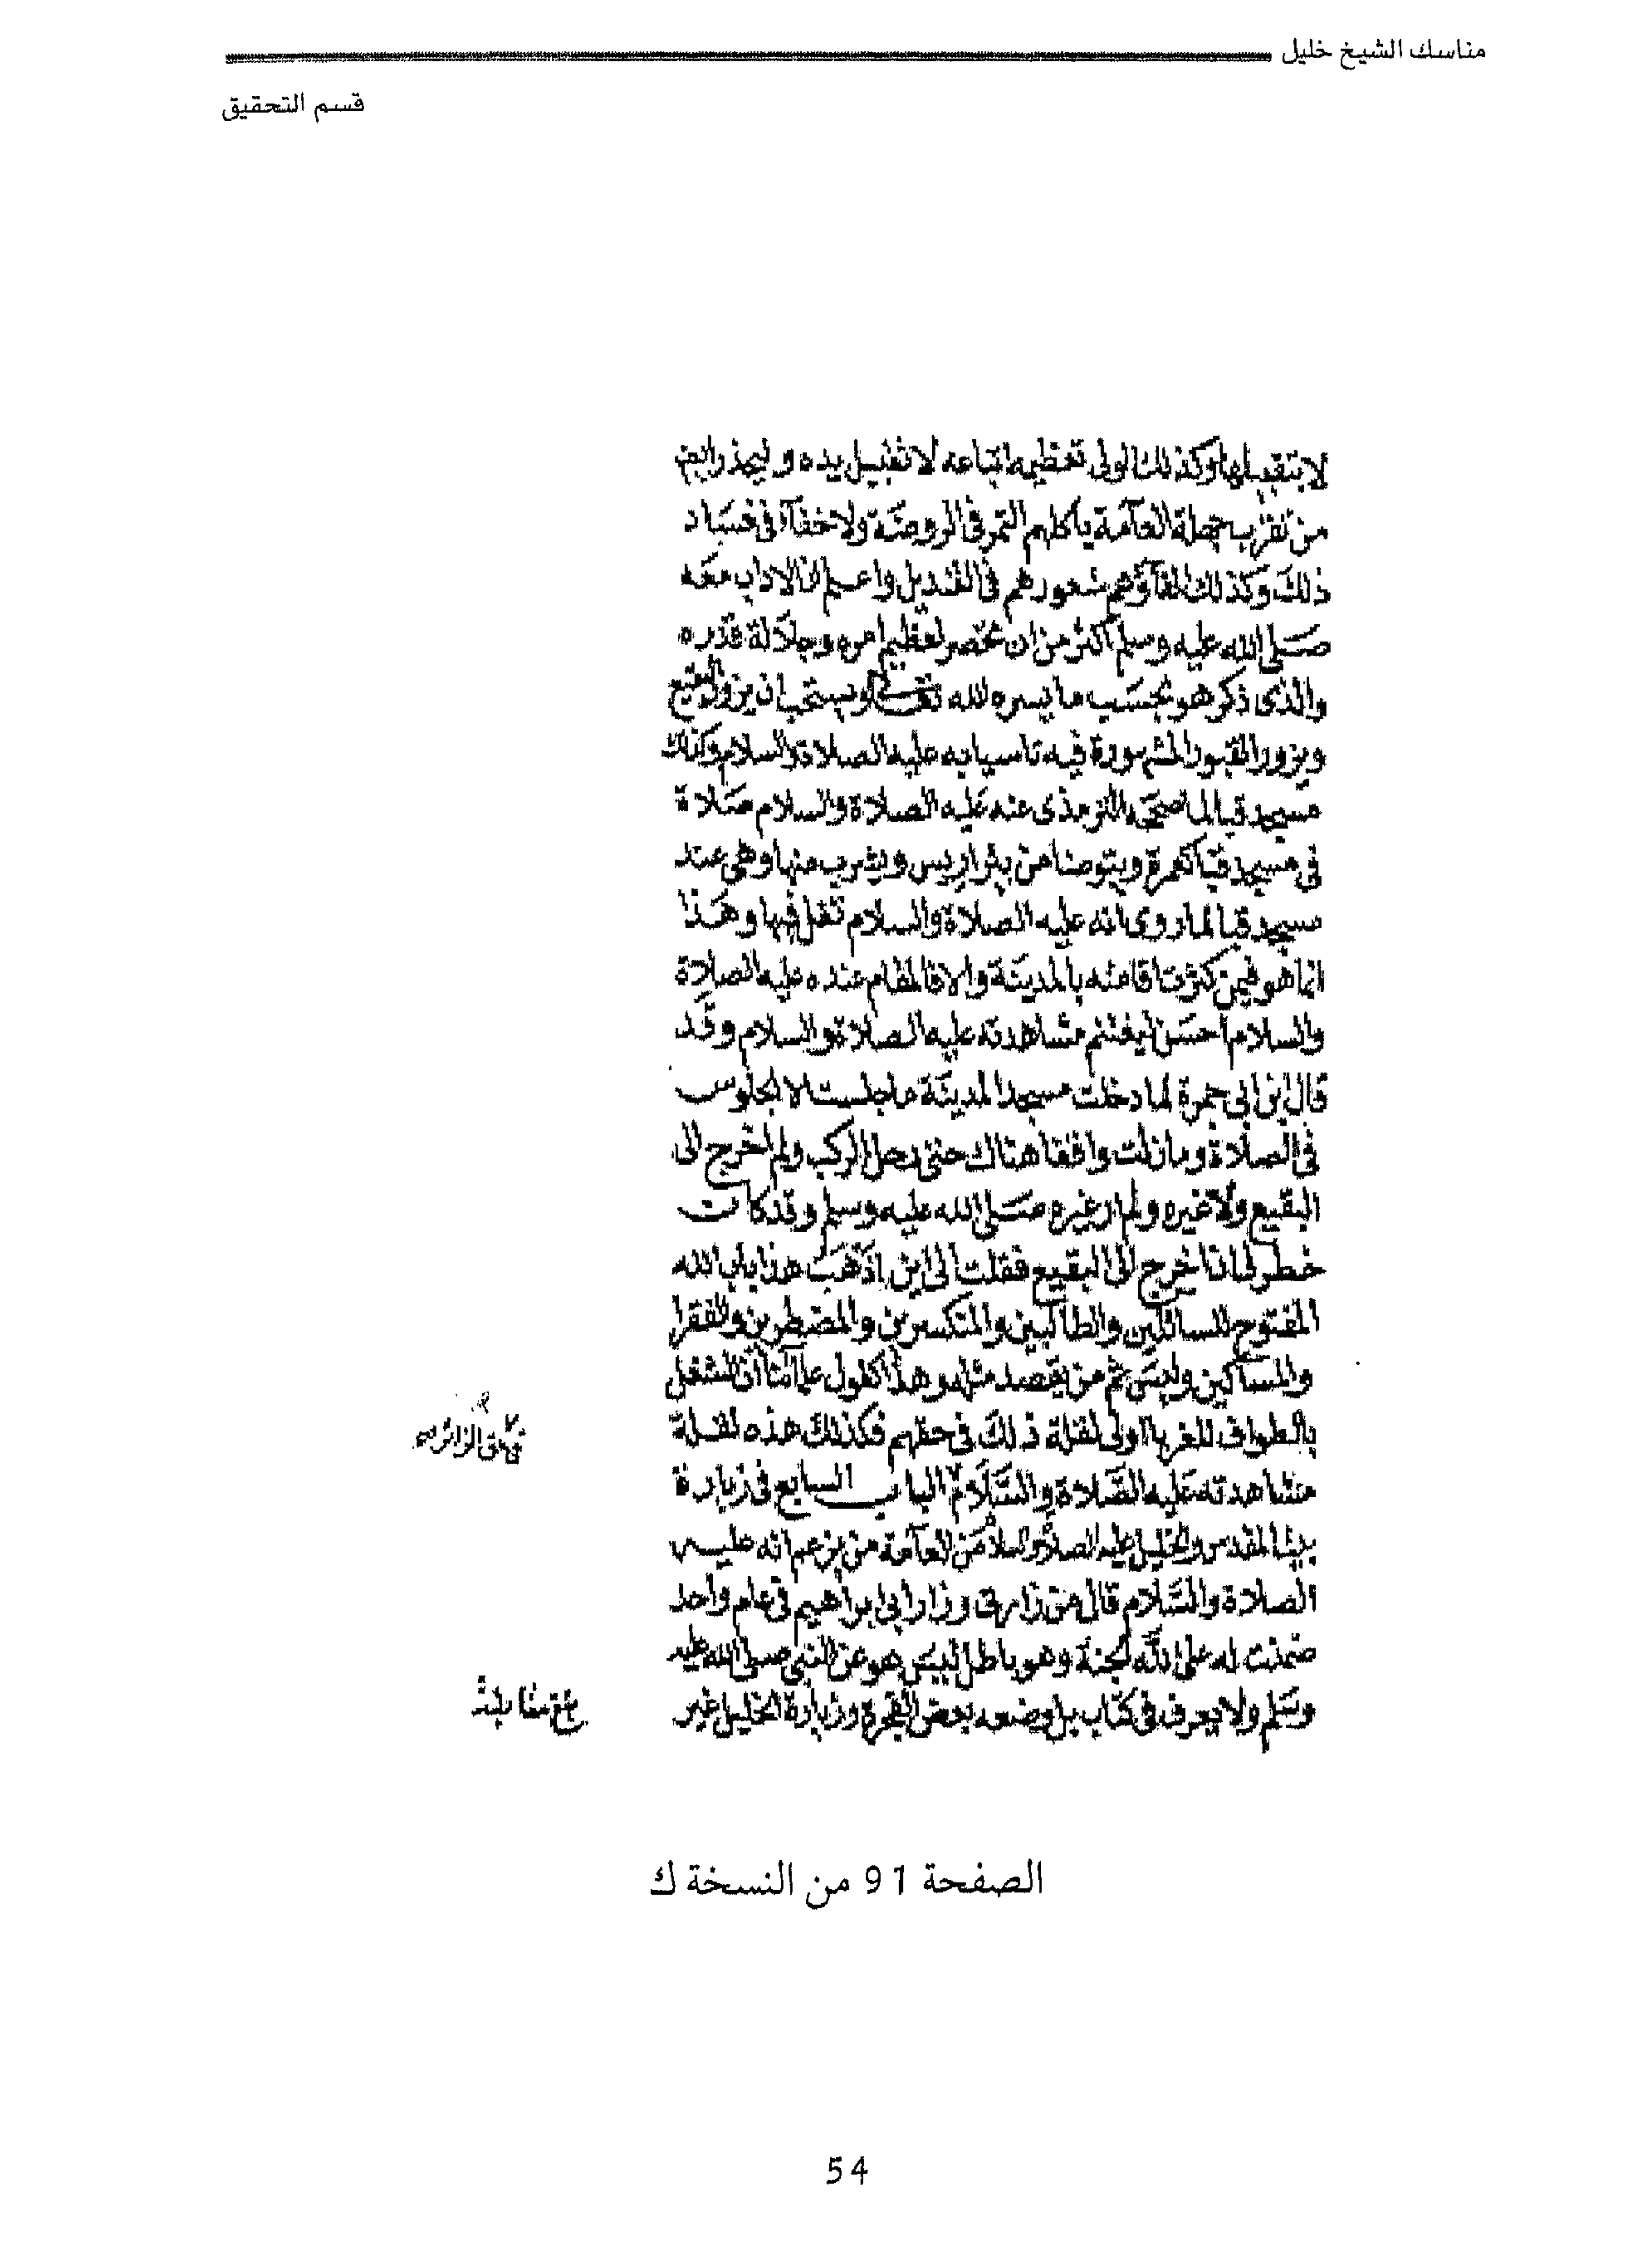 مناسك الشيخ خليل
قسم التحقيق
لا بتقبيلها وكذلك الولى تعظيمه اتباعه لا تقبيل يده وليحذر ايضا
من تقرب جهلة العآمة باكلهم التمر فى الروضة ولا خفآء فى فساد
ذلك وكذلك القآؤهم شعورهم فى القنديل واعلم ان الاداب معه
صلى الله عليه وسلم اكثر من ان تنحصر لعظيم امره وجلالة قدره
والذى ذكر هو بحسب ما يسره الله تعالى ويستحب ان يزور البقيع
ويزور القبور المشهورة فيه تاسيا به عليه الصلاة والسلام وكذلك
مسجد قبا لما صححه الترمذى عنه عليه الصلاة والسلام صلاة
فى مسجد قبا كعمرة ويتوضا من بئر اريس ويشرب منها وهى عند
مسجد قبا لما روى انه عليه الصلاة والسلام تفل فيها وهذا
انما هو فيمن كثرت اقامته بالمدينة والا فالمقام عنده عليه الصلاة
والسلام احسن ليغتنم مشاهدته عليه الصلاة والسلام وقد
قال ابن ابى جمرة لما دخلت مسجد المدينة ما جلست الا الجلوس
فى الصلاة وما زلت واقفا هناك حتى رحل الركب ولم اخرج الى
البقيع ولا غيره ولم ار غيره صلى الله عليه وسلم وقد كانت
خطر لى ان اخرج الى البقيع فقلت الى اين اذهب هذا باب الله
المفتوح للسائلين والطالبين والمنكسرين والمضطرين والفقرا
والمساكين وليس ثم من يقصد مثله وهذا كقول علمآئنا ان التنفل
بالطواف للغربا اولى لقلة ذلك فى حقهم فكذلك هذه لقلة
مشاهدته عليه الصلاة والسلام الباب السابع فى زيارة
بيت المقدس والخليل عليه الصلاة والسلام من العآمة من يزعم انه عليه
الصلاة والسلام قال من زارنى وزار ابى ابراهيم فى عام واحد
ضمنت له على الله الجنة وهو باطل ليس هو عن النبى صلى الله عليه
وسلم ولا يعرف فى كتاب بل وضعه بعض الفجرة وزيارة الخليل غير
الصفحة 91 من النسخة ك
54